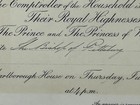 the Comptroller of the Household
Their Royal Highnesses
The Prince and The Princess of W
The Bishop of
arlborough House on Thursday,
at 4 p.m.